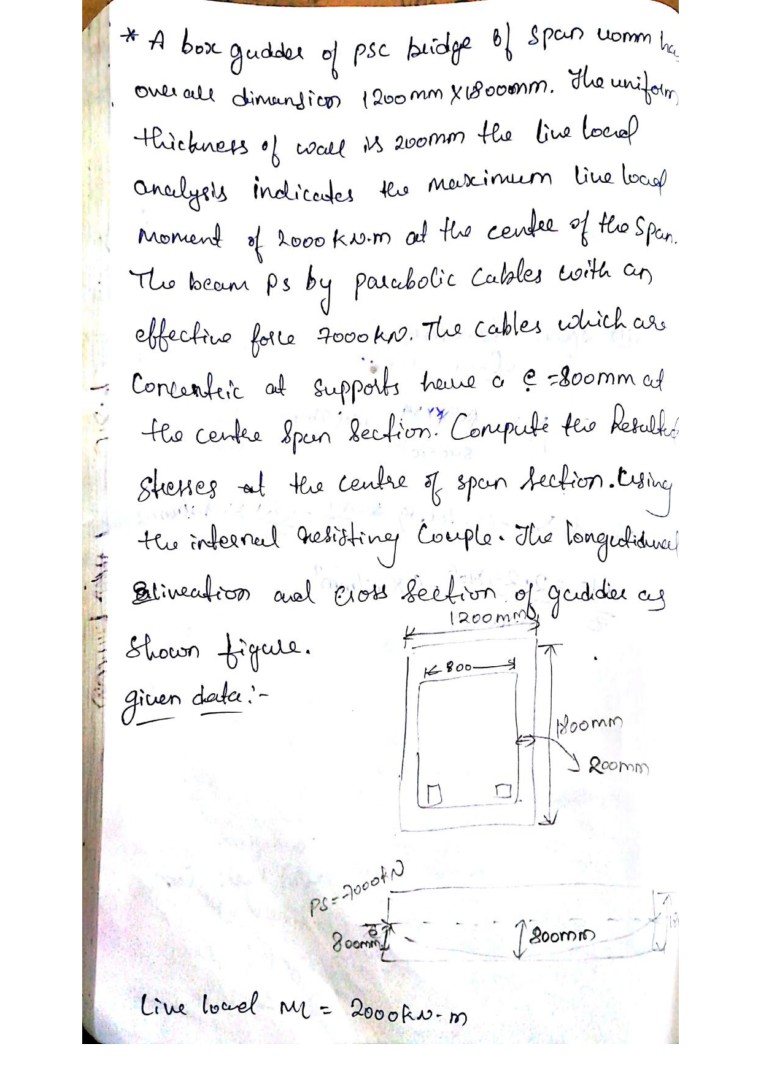 * A box gudder of psc bridge of span 40mm ha
overall dimension 1200mm X1800mm. The uniform
thickness of wall is 200mm the live load
analysis indicates the maximum live load
moment of 2000 kN.m at the centre of the span.
The beam Ps by parabolic cables with an
effective force 7000kN. The cables which are
Concentric at supports have a e =800mm at
the centre span section. Compute the Result
stresses at the centre of span section. Using
the internal resisting couple. The longutidunal
alineation and cross section of gudder as
shown figure.
given data:-
1200mm
800
1800mm
200mm
PS=7000kN
800mm
e
800mm
Live load ML = 2000kN-m